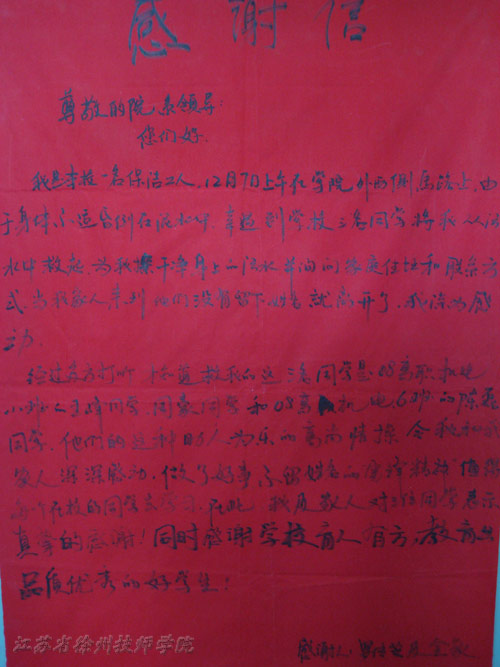 感谢信
尊敬的院、系领导:
您们好.
我是李校一名保洁工人,12月7日上午在学院外西侧马路上,由
于身体不适昏倒在泥水中,幸遇到学校三名同学将我从泥
水中救起,为我擦干净身上的泥水并询问家庭住址和联系方
式,当我家人来到他们没有留下姓名就离开了,我深为感
动。
经过多方打听 救我的这三名同学是08高职机电
同学和08高机电6班的陈
同学,他们的这种助人为乐的高尚情操,令我和我
家人深深感动,做了好事不留姓名的 精神值得
每个在校的同学去学习,在此,我及家人对三位同学表示
真挚的感谢!同时感谢学校育人有方,教育出
品质优秀的好学生!
感谢人:
江苏省徐州技师学院